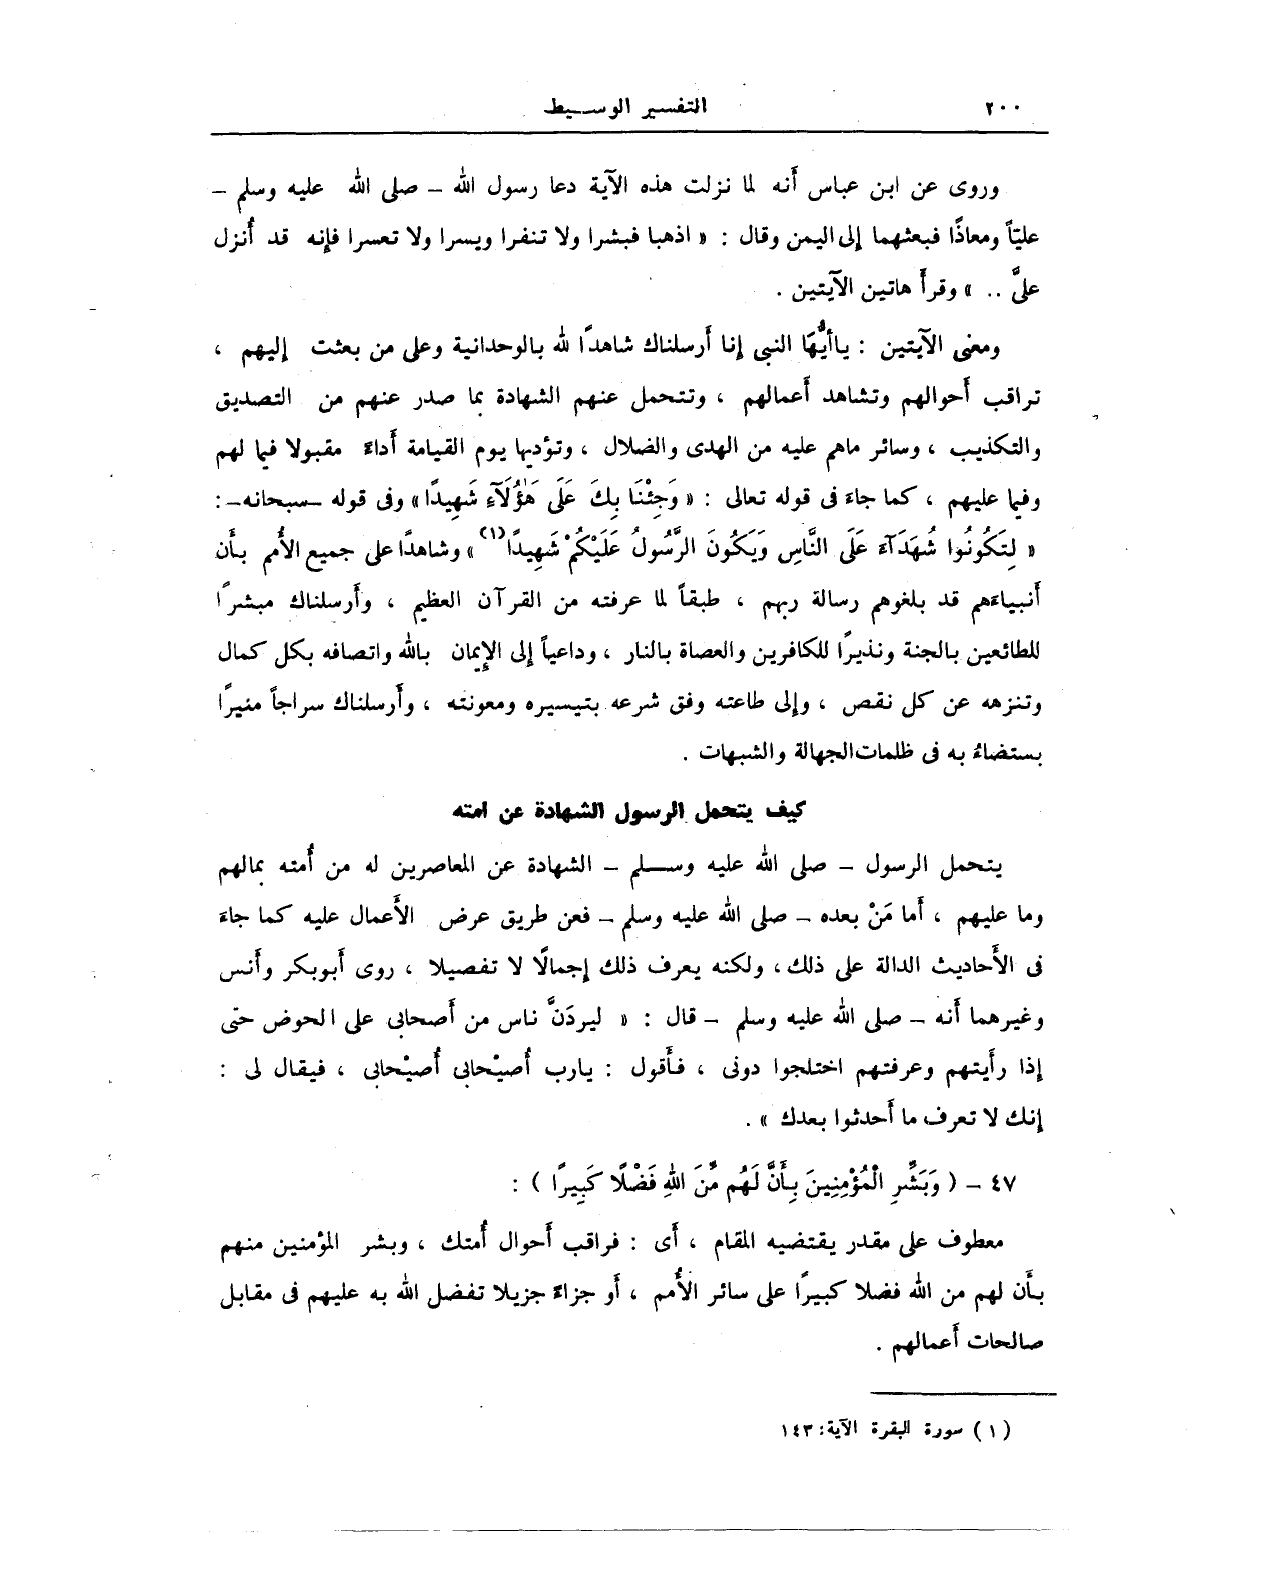 ٢٠٠ التفسير الوسيط
وروى عن ابن عباس أَنه لما نزلت هذه الآية دعا رسول الله – صلى الله عليه وسلم –
عليّاً ومعاذًا فبعثهما إلى اليمن وقال : « اذهبا فبشرا ولا تنفرا ويسرا ولا تعسرا فإنه قد أُنزل
علىَّ .. » وقرأَ هاتين الآيتين .
ومعنى الآيتين : ياأَيُّهَا النبى إنا أَرسلناك شاهدًا لله بالوحدانية وعلى من بعثت إليهم ،
تراقب أَحوالهم وتشاهد أَعمالهم ، وتتحمل عنهم الشهادة بما صدر عنهم من التصديق
والتكذيب ، وسائر ماهم عليه من الهدى والضلال ، وتؤديها يوم القيامة أَداءً مقبولا فيما لهم
وفيما عليهم ، كما جاءَ فى قوله تعالى : « وَجِئْنَا بِكَ عَلَى هَٰؤُلَآءِ شَهِيدًا » وفى قوله –سبحانه– :
« لِتَكُونُوا شُهَدَآءَ عَلَى النَّاسِ وَيَكُونَ الرَّسُولُ عَلَيْكُمْ شَهِيدًا(١) » وشاهدًا على جميع الأُمم بأَن
أَنبياءَهم قد بلغوهم رسالة ربهم ، طبقاً لما عرفته من القرآن العظيم ، وأَرسلناك مبشرًا
للطائعين بالجنة ونذيرًا للكافرين والعصاة بالنار ، وداعياً إلى الإيمان بالله واتصافه بكل كمال
وتنزهه عن كل نقص ، وإلى طاعته وفق شرعه بتيسيره ومعونته ، وأَرسلناك سراجاً منيرًا
يستضاءُ به فى ظلمات الجهالة والشبهات .
كيف يتحمل الرسول الشهادة عن امته
يتحمل الرسول – صلى الله عليه وسلم – الشهادة عن المعاصرين له من أُمته بمالهم
وما عليهم ، أَما مَنْ بعده – صلى الله عليه وسلم – فعن طريق عرض الأَعمال عليه كما جاءَ
فى الأَحاديث الدالة على ذلك ، ولكنه يعرف ذلك إجمالًا لا تفصيلا ، روى أَبوبكر وأَنس
وغيرهما أَنه – صلى الله عليه وسلم – قال : « ليردَنَّ ناس من أَصحابى على الحوض حتى
إذا رأَيتهم وعرفتهم اختلجوا دونى ، فأَقول : يارب أُصيْحابى أُصيْحابى ، فيقال لى :
إنك لا تعرف ما أَحدثوا بعدك » .
٤٧ – ( وَبَشِّرِ الْمُؤْمِنِينَ بِأَنَّ لَهُم مِّنَ اللهِ فَضْلًا كَبِيرًا ) :
معطوف على مقدر يقتضيه المقام ، أَى : فراقب أَحوال أُمتك ، وبشر المؤمنين منهم
بأَن لهم من الله فضلا كبيرًا على سائر الأُمم ، أَو جزاءً جزيلا تفضل الله به عليهم فى مقابل
صالحات أَعمالهم .
(١) سورة البقرة الآية : ١٤٣